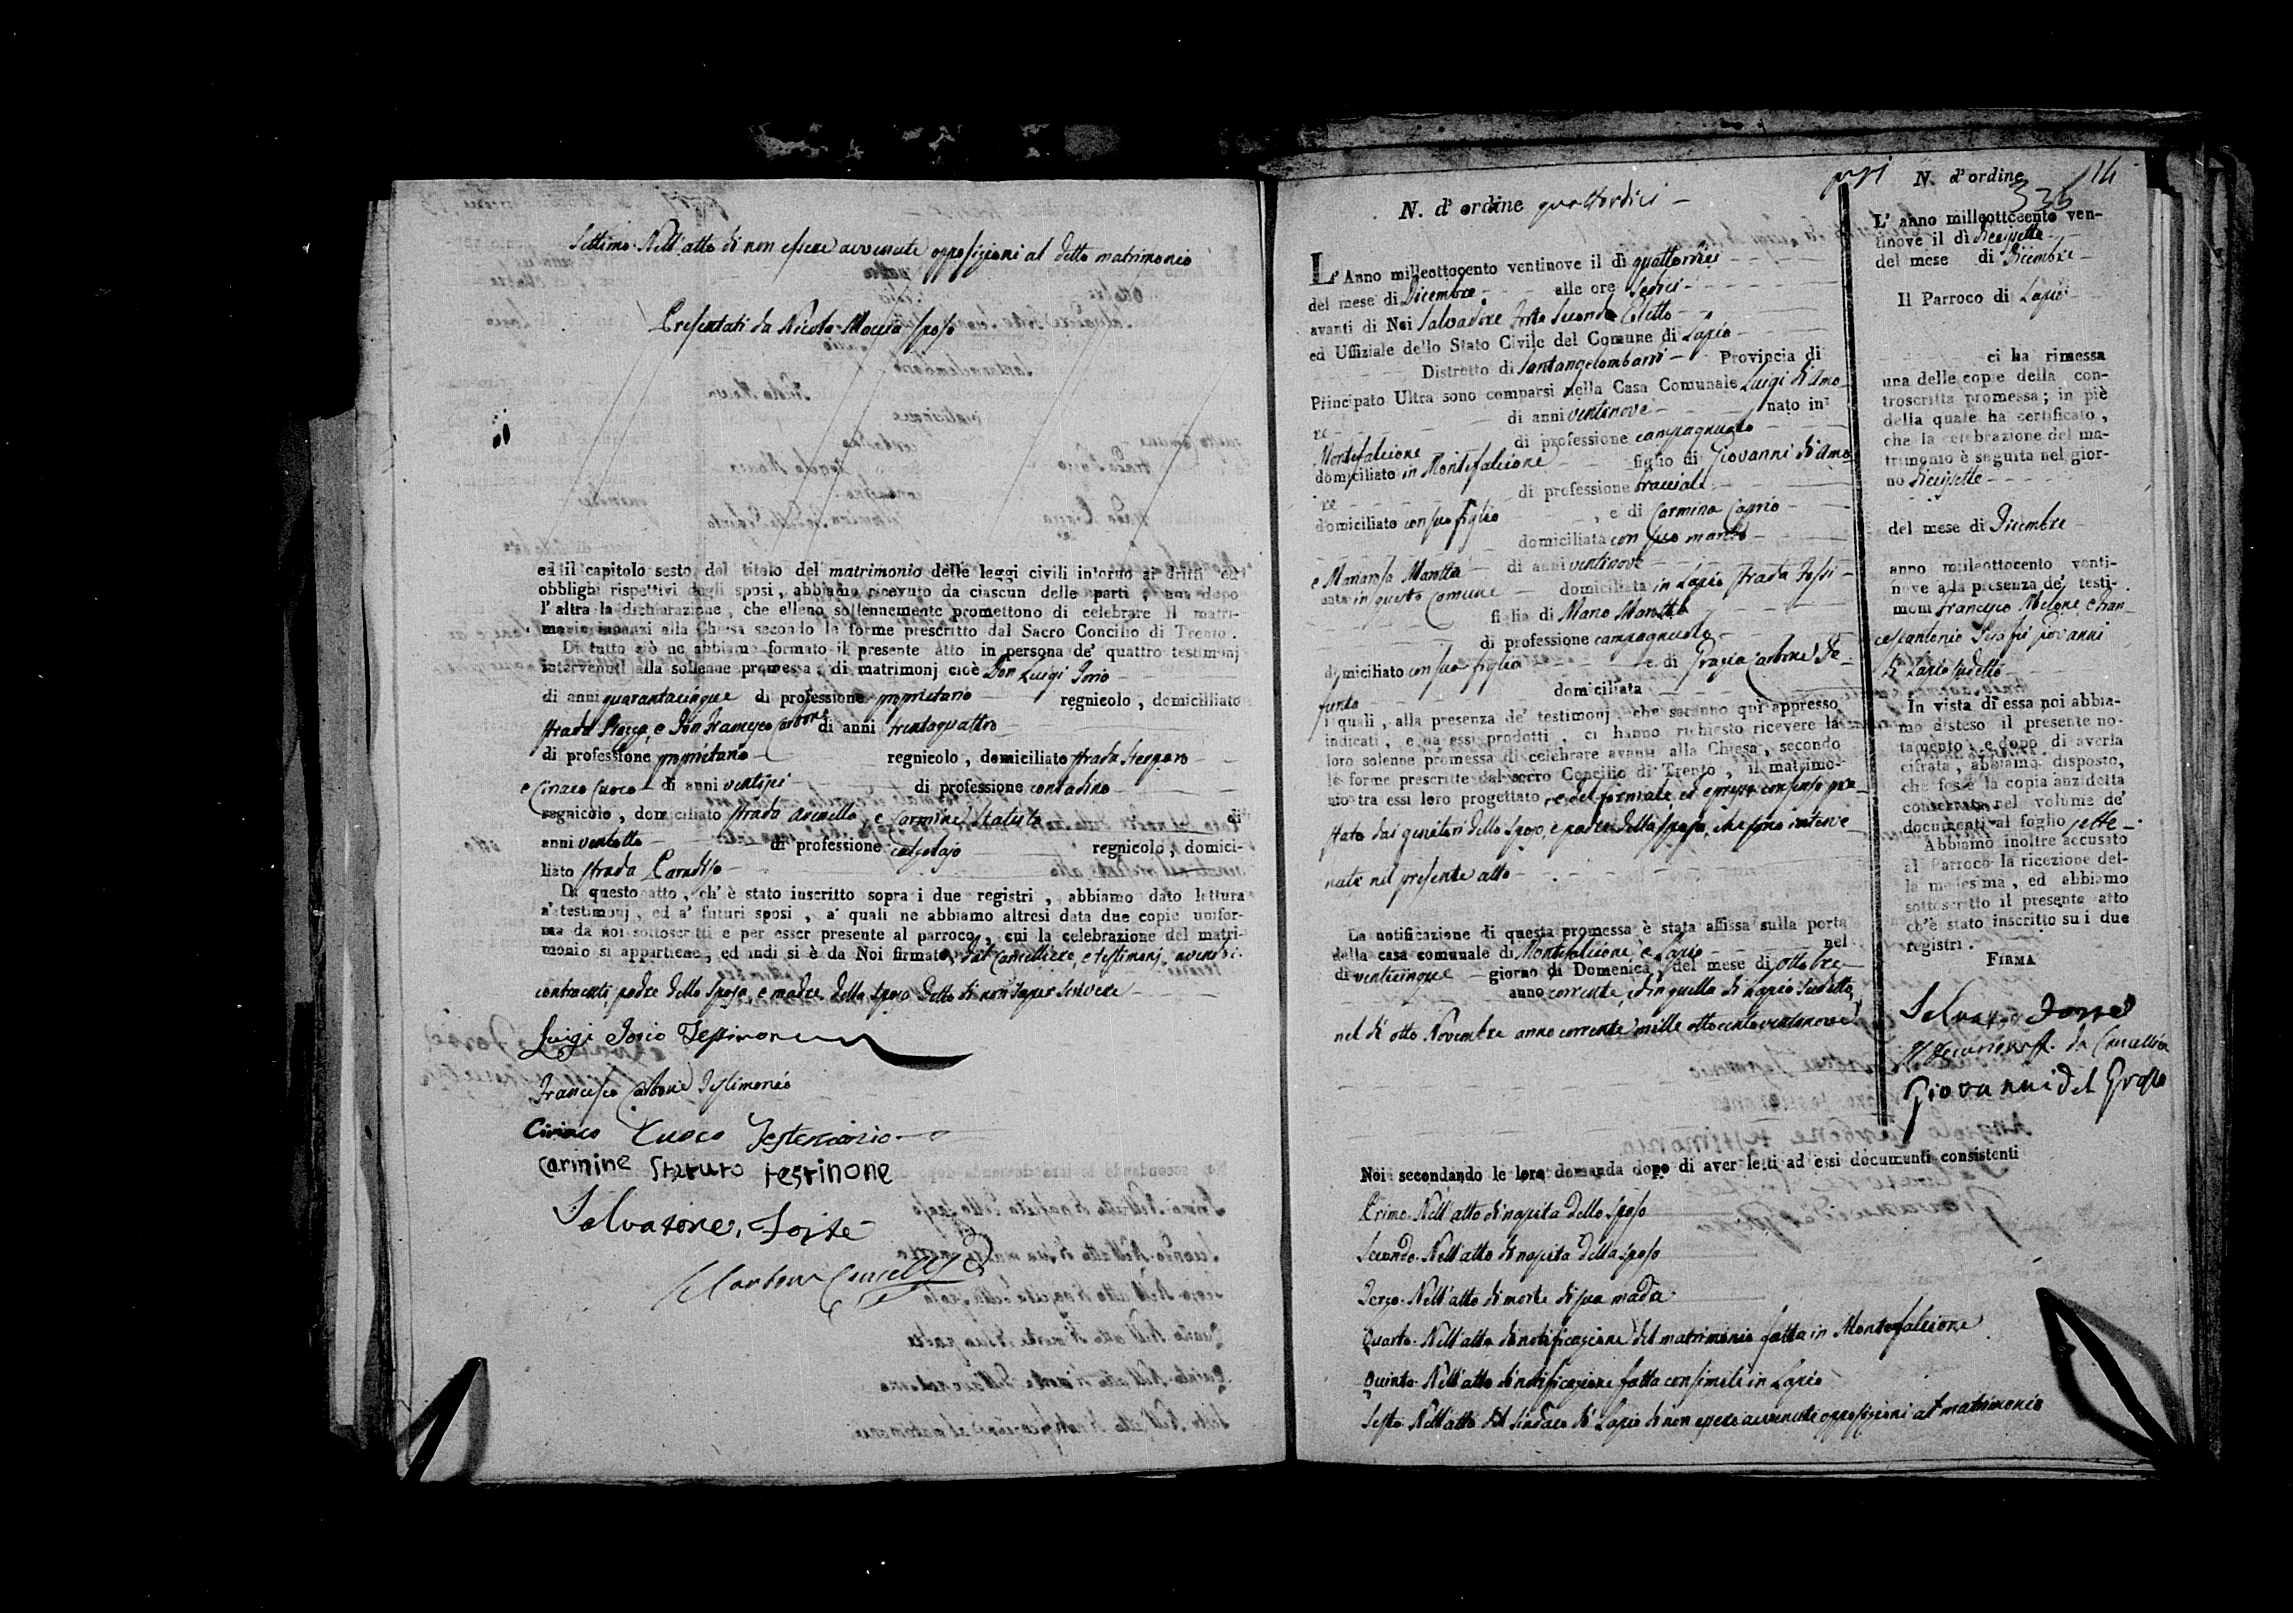 Settimo. Nell'atto di non essere avvenute opposizioni al detto matrimonio
Presentati da Nicola Moccia sposo
ed il capitolo sesto del titolo del matrimonio delle leggi civili intorno ai dritti ed
obblighi rispettivi degli sposi, abbiamo ricevuto da ciascun delle parti, una dopo
l'altra la dichiarazione, che elleno sollennemente promettono di celebrare il matri-
monio innanzi alla Chiesa secondo le forme prescritto dal Sacro Concilio di Trento.
Di tutto ciò ne abbiamo formato il presente atto in persona de' quattro testimonj
intervenuti alla sollenne promessa di matrimonj cioè Don Luigi Iorio
di anni quarantacinque di professione proprietario regnicolo, domicilliato
strada Piazza, e Don Francesco Carbone di anni trentaquattro
di professione proprietario regnicolo, domiciliato strada
e Ciriaco Cuoco di anni ventisei di professione contadino
regnicolo, domiciliato strada e Carmine Statuto di
anni ventotto di professione calzolajo regnicolo, domici-
liato strada Paradiso
Di questo atto, ch' è stato inscritto sopra i due registri, abbiamo dato lettura
a' testimonj, ed a' futuri sposi, a' quali ne abbiamo altresì data due copie unifor-
me da noi sottoscritti e per esser presente al parroco, cui la celebrazione del matri-
monio si appartiene, ed indi si è da Noi firmato, dal Cancelliere, e testimonj, avendo i
contraenti, padre dello sposo, e madre dello sposo detto di non saper scrivere
Luigi Iorio Testimone
Francesco Carbone Testimonio
Ciriaco Cuoco Testemonio
Carmine Staruto testinone
Salvatore Forte
Carbone Cancelliere
N. d' ordine quattordici
L' Anno milleottocento ventinove il dì quattordici
del mese di Dicembre alle ore sedici
avanti di Noi Salvadore Forte Secondo Eletto
ed Uffiziale dello Stato Civile del Comune di Lapio
Distretto di Santangelombardi Provincia di
Principato Ultra sono comparsi nella Casa Comunale Luigi di Amo-
re di anni ventinove nato in
Montefalcione di professione campagnuolo
domiciliato in Montefalcione figlio di Giovanni di Amo
re di professione bracciale
domiciliato con suo figlio, e di Carmina Caprio
domiciliata con suo marito
e Marianna Marotta di anni ventinove
nata in questo Comune domiciliata in Lapio strada Fossi
figlia di Mario Marotta
di professione campagnuolo
domiciliato con sua figlia e di Grazia Carbone De-
funta domiciliata
i quali, alla presenza de' testimonj che saranno qui appresso
indicati, e da essi prodotti, ci hanno richiesto ricevere la
loro solenne promessa di celebrare avanti alla Chiesa, secondo
le forme prescritte dal sacro Concilio di Trento, il matrimo-
nio tra essi loro progettato, e del formale, ed espresso consenso pre-
stato dai genitori dello sposo, e padre della sposa, che sono interve-
nuti nel presente atto
La notificazione di questa promessa è stata affissa sulla porta
della casa comunale di Montefalcione, e Lapio nel
dì venticinque giorno di Domenica, del mese di ottobre
anno corrente, ed in quella di Lapio sudetto,
nel dì otto Novembre anno corrente mille ottocentoventinove
Noi secondando le loro domanda dopo di aver letti ad essi documenti consistenti
Primo. Nell'atto di nascita dello sposo
Secondo. Nell'atto di nascita della sposa
Terzo. Nell'atto di morte di sua madre
Quarto. Nell'atto di notificazione del matrimonio fatta in Montefalcione
Quinto. Nell'atto di notificazione fatta consimile in Lapio
Sesto. Nell'atto del Sindaco di Lapio di non essere avvenute opposizioni al matrimonio
14
N. d' ordine
336
L' anno milleottocento ven-
tinove il dì diecisette
del mese di Dicembre
Il Parroco di Lapio
ci ha rimessa
una delle copie della con-
troscritta promessa; in piè
della quale ha certificato,
che la celebrazione del ma-
trimonio è seguita nel gior-
no diecisette
del mese di Dicembre
anno milleottocento venti-
nove alla presenza de' testi-
moni Francesco Melone e Fran-
cescantonio
di Lapio sudetto
In vista di essa noi abbia-
mo disteso il presente no-
tamento, e dopo di averla
cifrata, abbiamo disposto,
che fosse la copia anzidetta
conservata nel volume de'
documenti al foglio sette
Abbiamo inoltre accusato
al Parroco la ricezione del-
la medesima, ed abbiamo
sottoscritto il presente atto
ch'è stato inscritto su i due
registri.
FIRMA
Salvatore Forte
Giovanni del Grosso